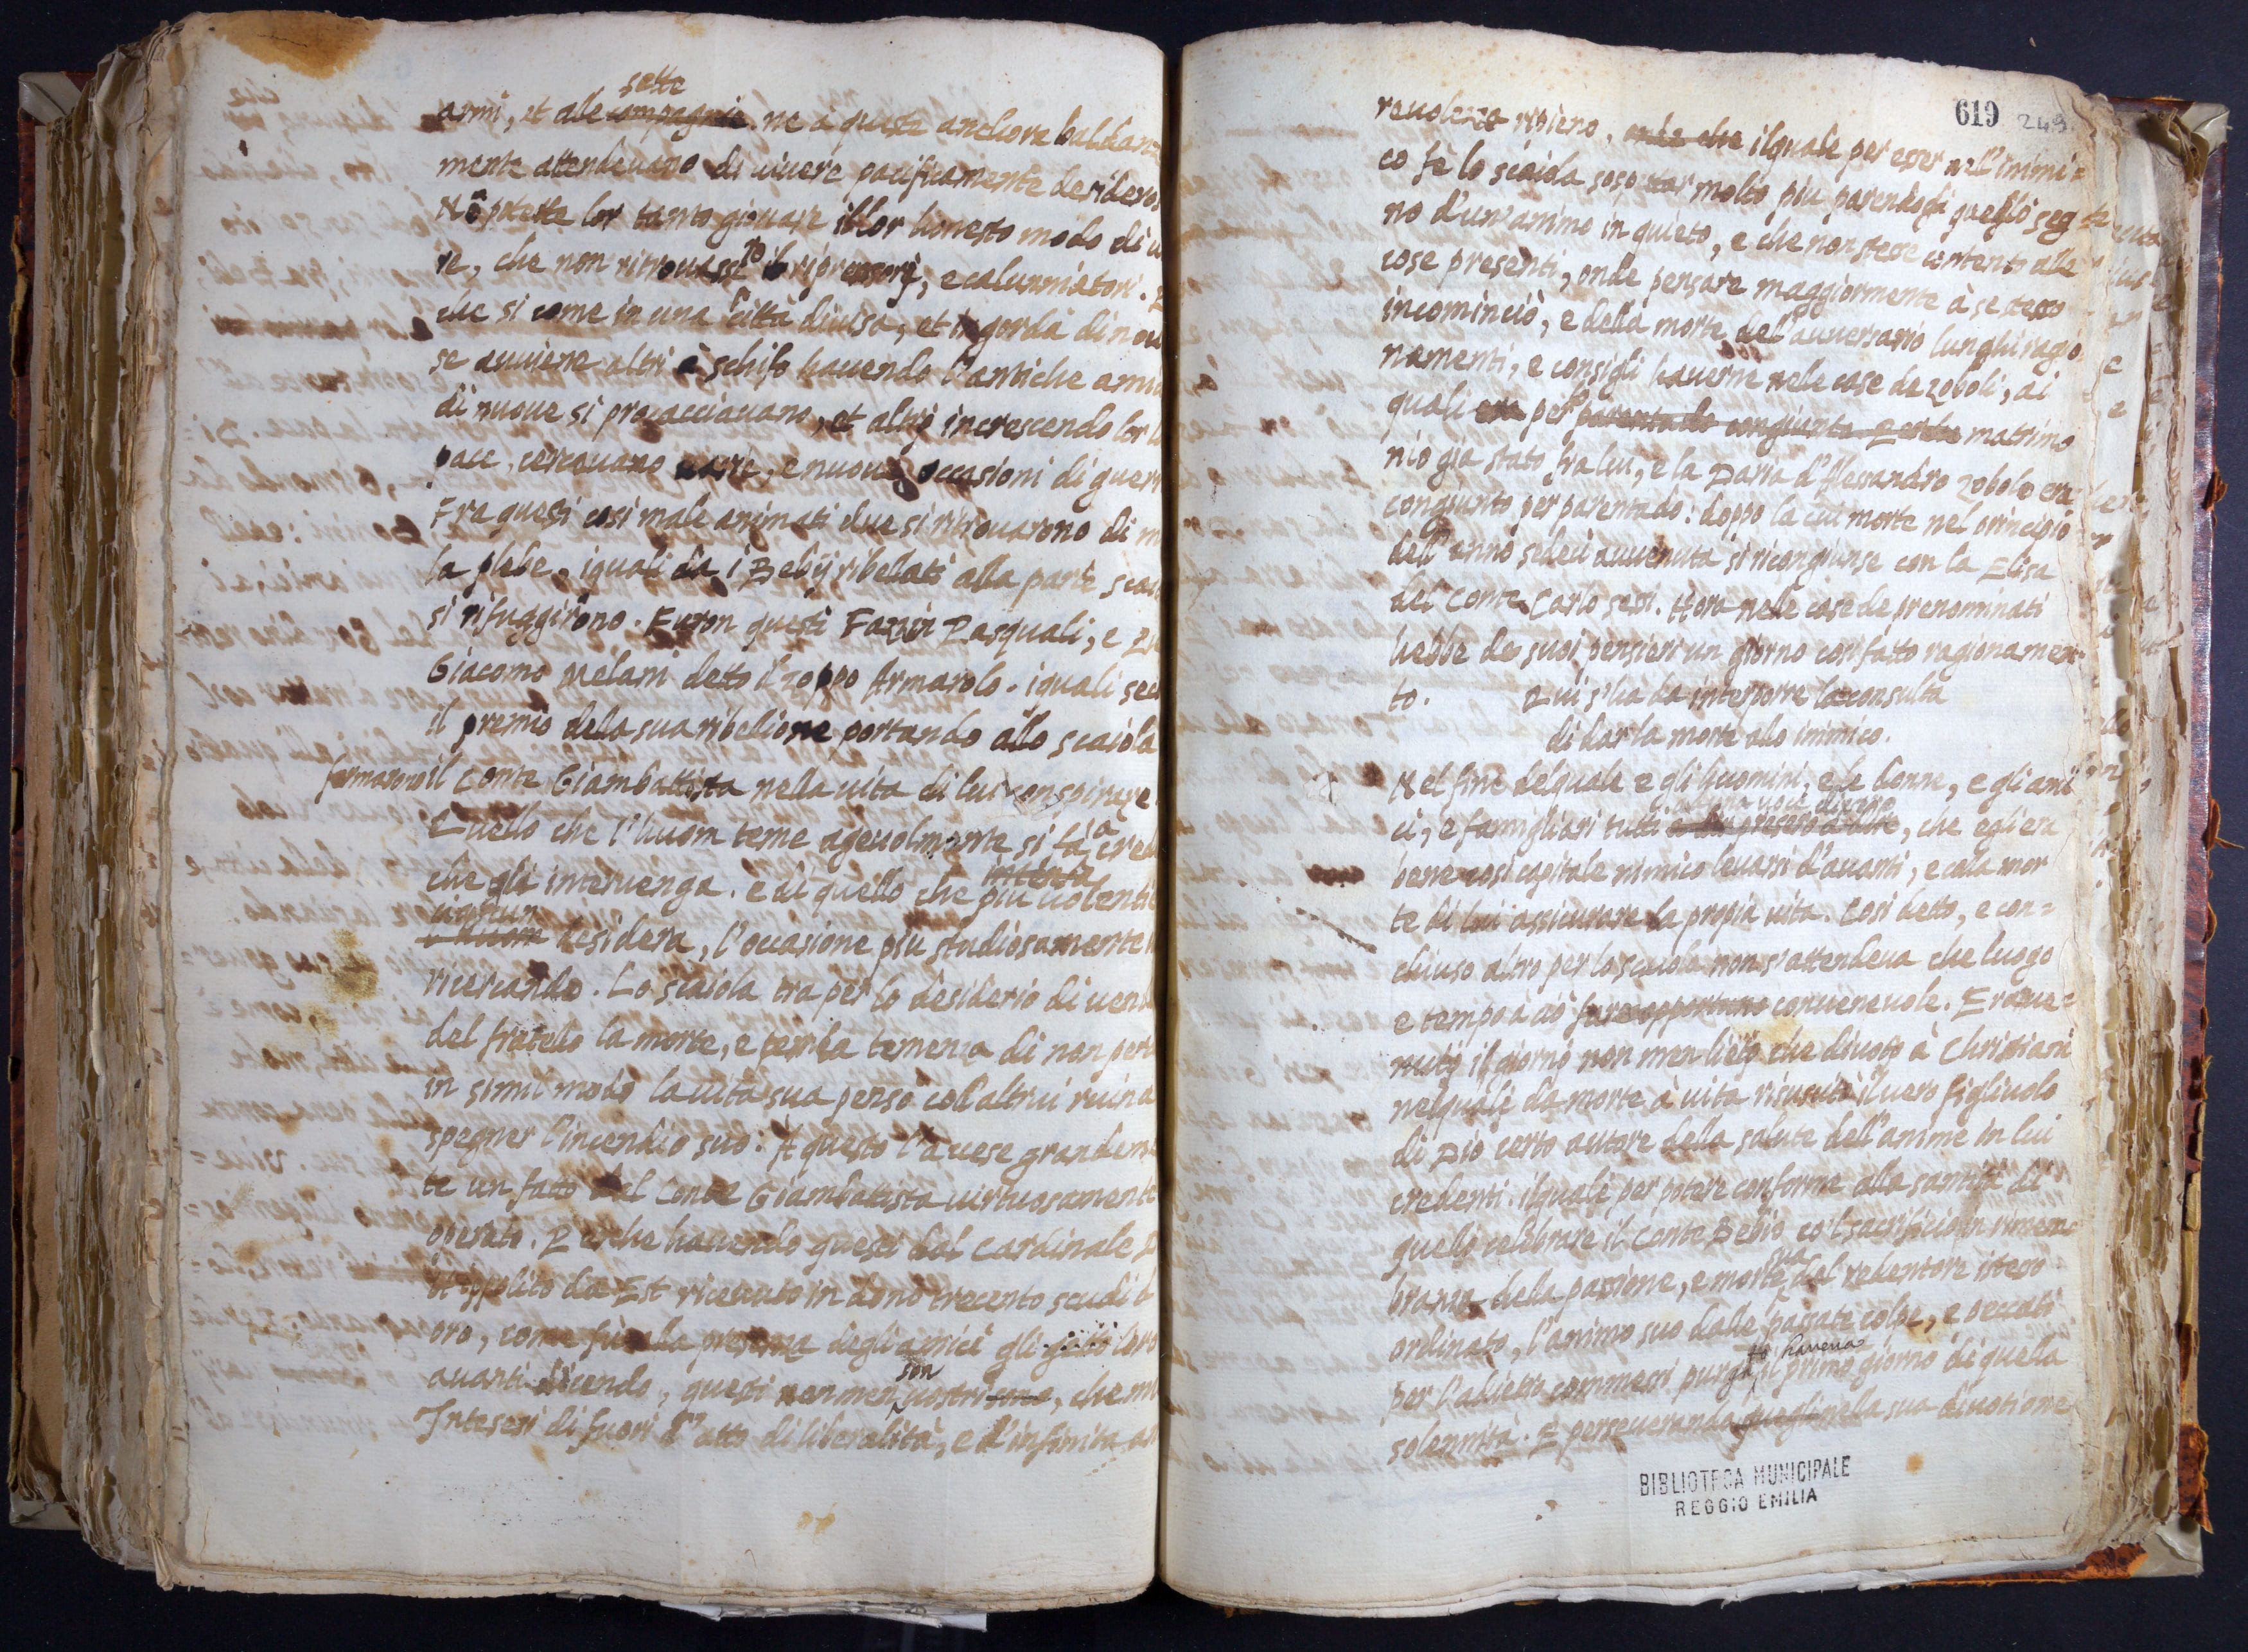 sette
armi, et alle compagnie. ne à queste anchora baldan
mente attendevano di vivere pacificamente desidero
Nō potette lor tanto giovare il lor honesto modo di vi
re, che non ritrovassero riprensori, e calunniatori.
che si come in una Città divisa, et ingorda di nov
se aviene altri à schifo havendo l'antiche ami
di nuove si procacciavano, et altri increscendo lor l
pace, cercavano varie, e nuove occasioni di guer
Fra questi così male animati due si ritrovarono di
la plebe, i quali da i Bebij ribelati alla parte scai
si rifuggirono. Furon questi Fazzin Pasquali, e
Giacomo Melani detto il zoppo Armarolo. i quali se
il premio dela sua ribellione portando allo scaiola
fermarono il Conte Giambattista nella vita di lui conspirare
Quello che l'huom teme agevolmente si fà à cred
che gli intervenga. e di quello che più volenti
ciascun
l'huom desidera, l'occasione più studiosamente
ricercando. Lo scaiola tra per lo desiderio di vend
del fratello la morte, e per la temenza di non per
in simil modo la vita sua pensò col'altrui ruina
spegner l'incendio suo. A questo l'accese grandem
te un fatto del Conte Giambatista virtuosamente
operato. Perche havendo questi dal Cardinale
Hippolito da Est ricevuto in dono trecento scudi d
oro, come fù alla presenza degli amici gli gittò loro
son
avanti dicendo, questi non men vostri sono, che mi
Intesesi di fuori l'atto di liberalità, e d'infinita a
619 249
revolezza ripieno, onde che il quale per esser nell'inimi=
co fè lo scaiola sospettar molto più parendogli quello seg
no d'un'animo inquieto, e che non stesse contento alle
cose presenti, onde pensare maggiormente à se stesso
incominciò, e della morte dell'avversario lunghi ragio
namenti, e consigli haverne nele case da Zoboli, ai
quali era per parentado congiunto Perche matrimo
nio già stato fra lui, e la Daria d'Alessandro Zobolo era
congiunto per parentado: doppo la cui morte nel principio
dell'anno sedeci avvenuta si ricongiunse con la Elisa
del Conte Carlo sesi. Hora nelle case de prenominati
hebbe de suoi pensieri un giorno cosi fatto ragionamen=
to. Qui s'ha da interporre la consulta
di dar la morte alo inimico.
Nel fine del quale e gli huomini, e le donne, e gli ami
ad una voce dissero
ci, e famigliari tutti à dir presero à dire, che egli era
bene così capitale nimico levarsi d'avanti, e cola mor
te di lui assicurare la propia vita. Così detto, e con=
chiuso altro per lo scaiola non s'attendeva che luogo
e tempo à ciò fare opportuno convenevole. Era ve=
nuto il giorno non men lieto che divoto à Christiani
nel quale da morte à vita risuscitò il vero figlivolo
di Dio certo autore della salute dell'anime in lui
credenti. il quale per potere conforme alla santità di
quello celebrare il Conte Bebio co'l sacrificio in rimem=
sua
branza della passione, e morte dal redentore stesso
ordinato, l'animo suo dalle passate colpe, e peccati
to haveva
per l'adietro commessi purga il primo giorno di quella
solennità. E perseverando quegli nella sua divotione
BIBLIOTECA MUNICIPALE
REGGIO EMILIA